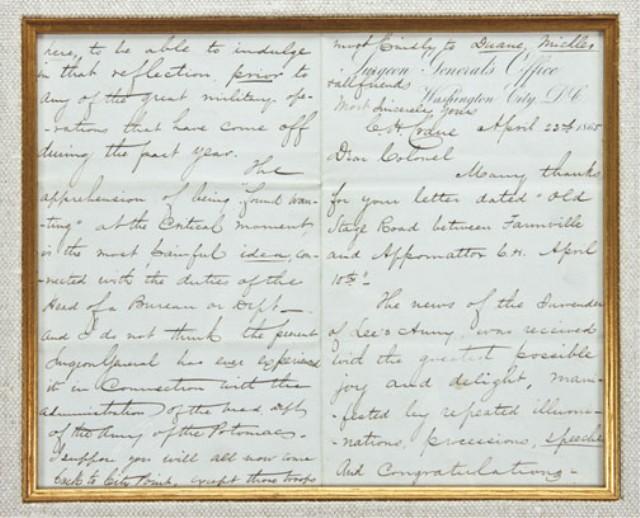 here, to be able to indulge
in that reflection prior to
any of the great military ope-
-rations that have come off
during the past year.
The
apprehension of being "found wan-
-ting" at the Critical moment,
is the most painful idea, con-
-nected with the duties of the
Head of a Bureau or Dept—
And I do not think the present
Surgeon General has ever experienced
it in Connection with the
administration of the Med. Dept
of the Army of the Potomac.
I suppose you will all now come
back to City Point, except those troops
most kindly to Duane,
Surgeon General's Office
& all friends
Washington City, D.C.
Most Sincerely yours
C. H. Crane April 23rd 1865
Dear Colonel
Many thanks
for your letter dated "Old
Stage Road between Farmville
and Appomattox C.H. April
10th"
The news of the Surrender
of Lee's Army, was received
with the greatest possible
joy and delight, mani-
-fested by repeated illumi-
-nations, processions, speeches
And Congratulations—